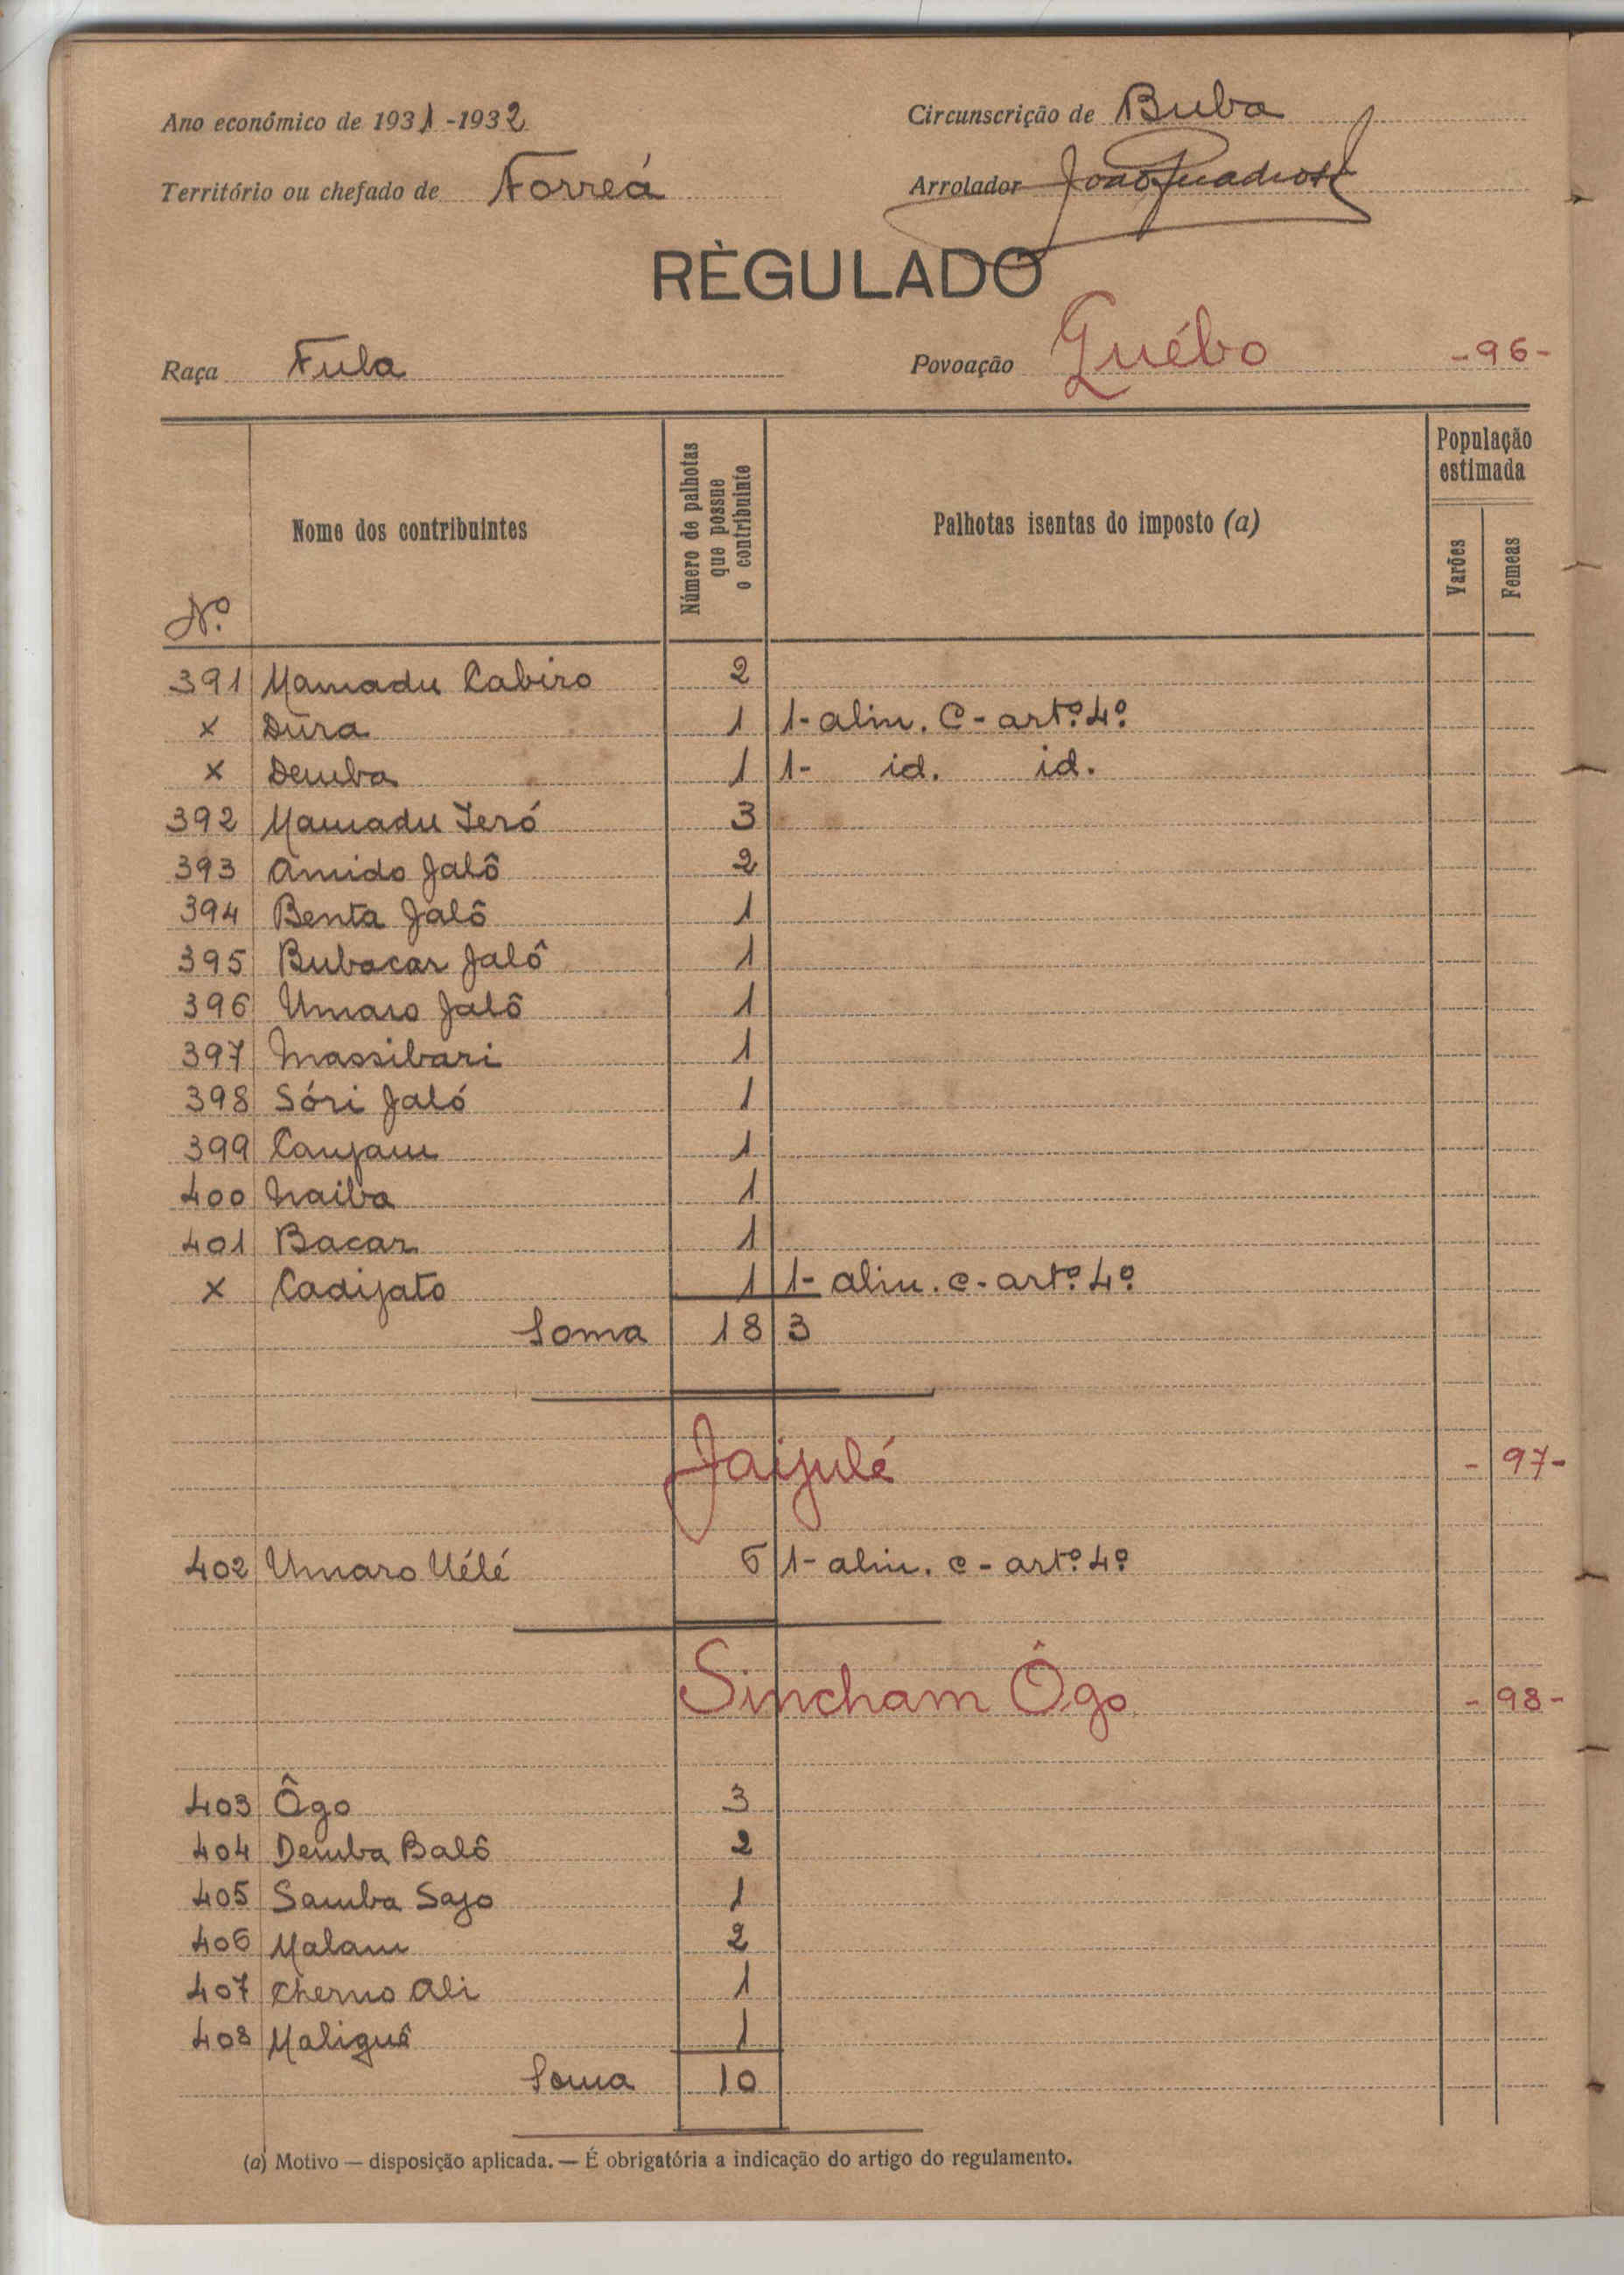 Ano económico de 1931-1932
Circunscrição de Buba
Território ou chefado de Forreá
Arrolador João
RÈGULADO
Raça Fula
Povoação Québo -96-
Nº
Nome dos contribuintes
Número de palhotas que possue o contribuinte
Palhotas isentas do imposto (a)
População estimada
Varões
Femeas
391 Mamadu Cabiro 2
x Dura 1 1- alin. C - artº. 4º
x Demba 1 1- id. id.
392 Mamadu Jeró 3
393 Amido Jalô 2
394 Benta Jalô 1
395 Bubacar Jalô 1
396 Umaro Jalô 1
397 Massibari 1
398 Sóri Jaló 1
399 Canjam 1
400 Naiba 1
401 Bacar 1
x Cadijato 1 1- alin. c - artº. 4º
Soma 18 3
Jaijulé - 97-
402 Umaro Uélé 6 1- alin. c - artº. 4º
Sincham Ôgo - 98 -
403 Ôgo 3
404 Demba Balô 2
405 Samba Sajo 1
406 Malam 2
407 Cherno Ali 1
408 Maliguê 1
Soma 10
(a) Motivo — disposição aplicada. — É obrigatória a indicação do artigo do regulamento.